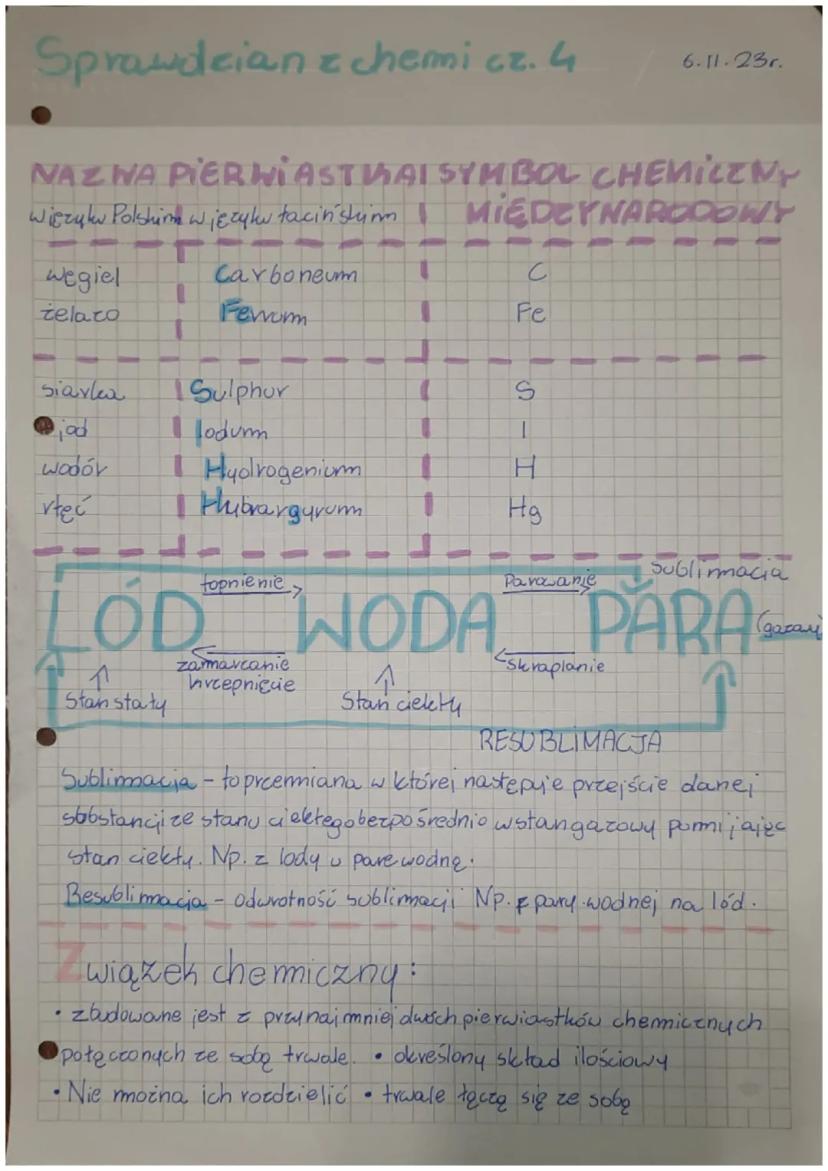 Sprawdzian z chemi cz. 4
6.11.23r.
NAZWA PIERWIASTKA I SYMBOL CHEMICZNY
w języku Polskim w języku łacińskim MIĘDZYNARODOWY
węgiel Carboneum C
żelazo Ferrum Fe
siarka Sulphur S
jod Iodum I
wodór Hydrogenium H
rtęć Hybrargyrum Hg
sublimacja
topnienie Parowanie
LÓD WODA PARA (gazowy
zamarzanie skraplanie
krzepnięcie
Stan stały Stan ciekły
RESUBLIMACJA
Sublimacja - to przemiana w której następuje przejście danej
substancji ze stanu ciekłego bezpośrednio w stan gazowy pomijając
stan ciekły. Np. z lody w parę wodną.
Resublimacja - odwrotność sublimacji Np. z pary wodnej na lód.
Związek chemiczny:
• zbudowane jest z przynajmniej dwóch pierwiastków chemicznych
połączonych ze sobą trwale. • określony skład ilościowy
• Nie można ich rozdzielić • trwale łączą się ze sobą